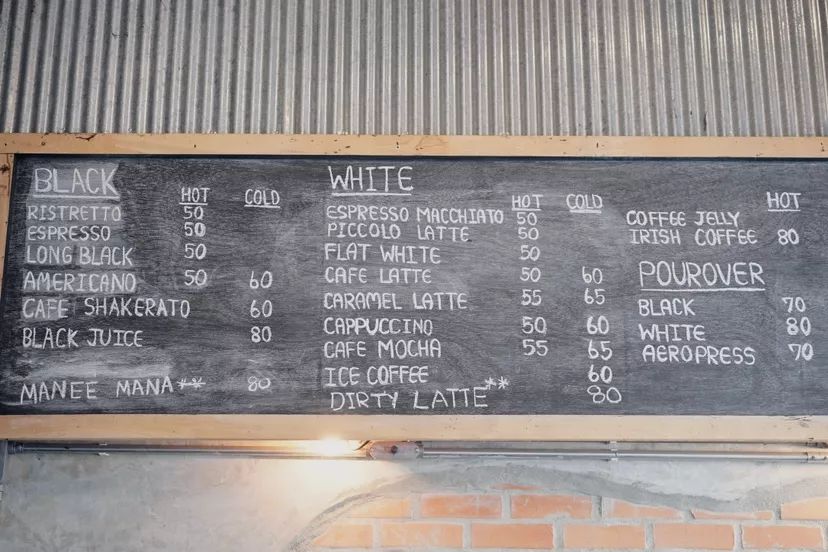 BLACK
HOT COLD
RISTRETTO 50
ESPRESSO 50
LONG BLACK 50
AMERICANO 50 60
CAFE SHAKERATO 60
BLACK JUICE 80
MANEE MANA** 80
WHITE
HOT COLD
ESPRESSO MACCHIATO 50
PICCOLO LATTE 50
FLAT WHITE 50
CAFE LATTE 50 60
CARAMEL LATTE 55 65
CAPPUCCINO 50 60
CAFE MOCHA 55 65
ICE COFFEE 60
DIRTY LATTE** 80
HOT
COFFEE JELLY
IRISH COFFEE 80
POUROVER
BLACK 70
WHITE 80
AEROPRESS 70